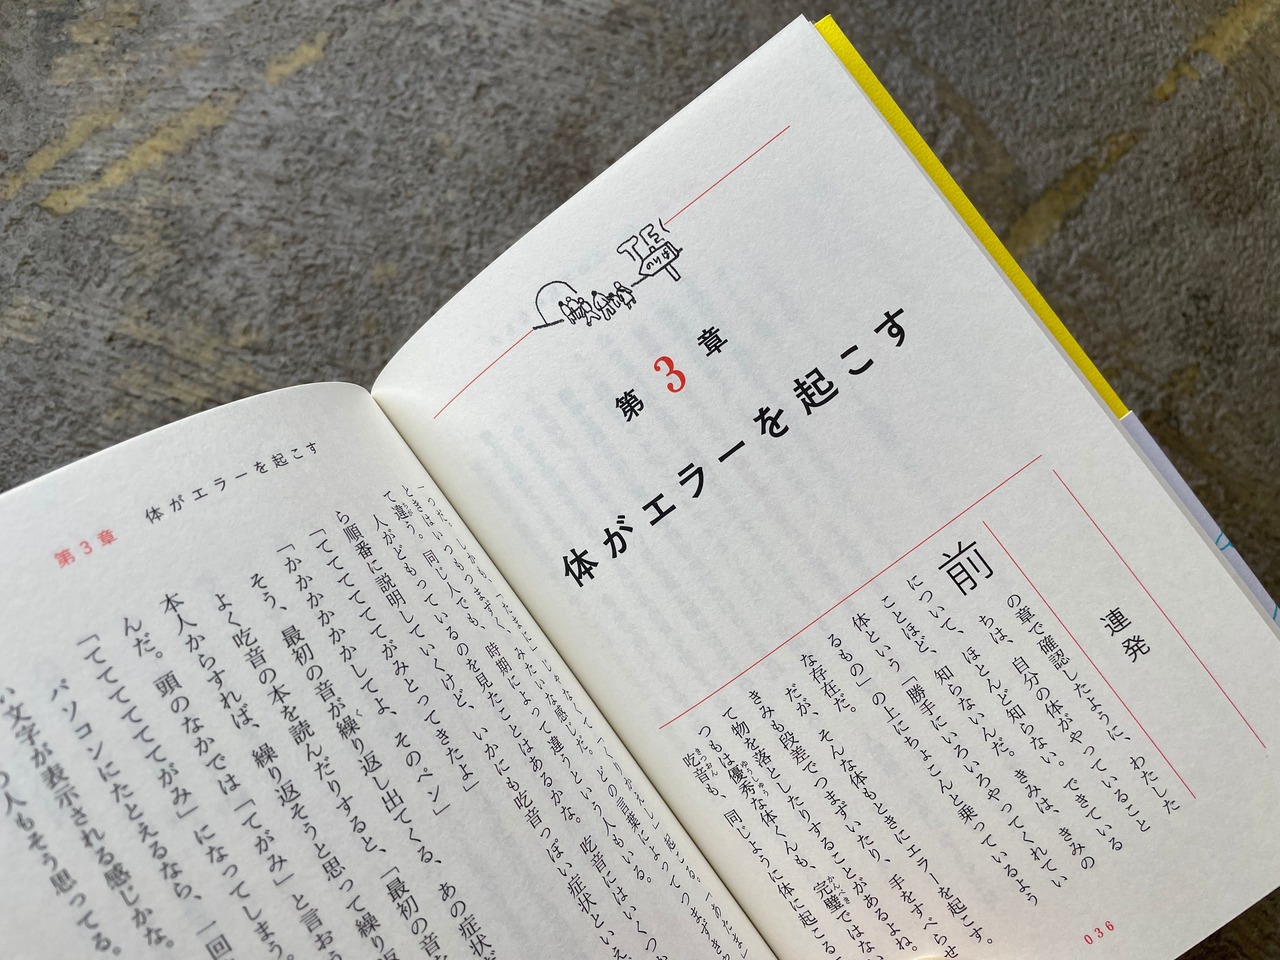 TE
のりば
第3章
体がエラーを起こす
連発
前
の章で確認したように、わたした
ちは、自分の体がやっていること
について、ほとんど知らない。できている
ことほど、知らないんだ。きみは、きみの
体という「勝手にいろいろやってくれてい
るもの」の上にちょこんと乗っているよう
な存在だ。
だが、そんな体もときにエラーを起こす。
きみも段差でつまずいたり、手をすべらせ
て物を落としたりすることがあるよね。
つもは優秀な体くんも、完璧ではない
吃音も、同じように体に起こる
036
第3章 体がエラーを起こす
ときはいつもつまずく、みたいな感じだ。どの言葉によってつまずき
違う。同じ人でも、時期によって違うという人もいる。
人がどもっているのを見たことはあるかな。吃音にはいくつか
ら順番に説明していくけど、いかにも吃音っぽい症状といえ
「てててててててがみとってきたよ」
「かかかかかかしてよ、そのペン」
そう、最初の音が繰り返し出てくる、あの症状だ
よく吃音の本を読んだりすると、「最初の音
本人からすれば、繰り返そうと思って繰り返
んだ。頭のなかでは「てがみ」と言おう
「ててててててがみ」になってしまう。
パソコンにたとえるなら、一回
い文字が表示される感じかな。
の人もそう思ってる。